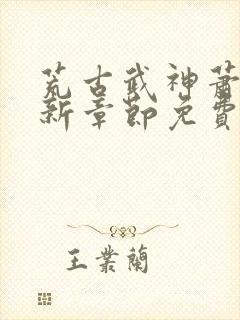 荒古武神蕭
新章節免費
王業蘭